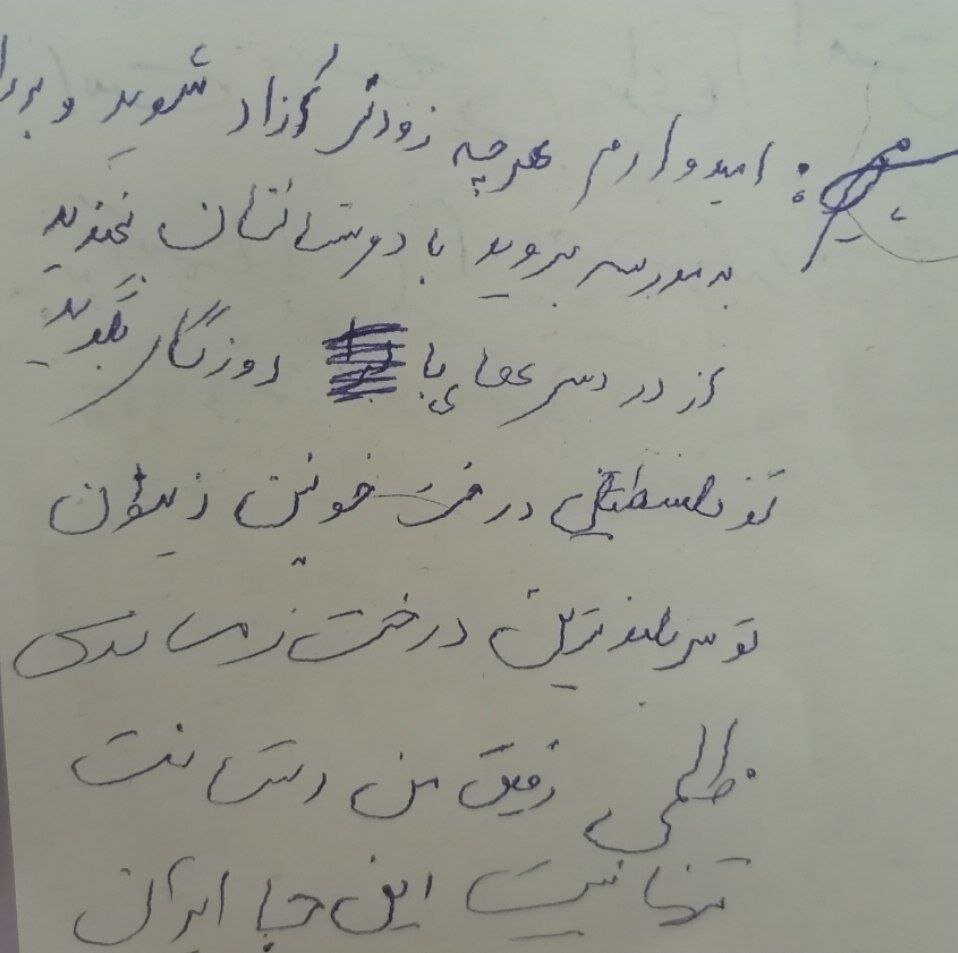 ج: امیدوارم هرچه زودتر آزاد شوید و
به مدرسه بروید با دوستانتان بخندید
از دردسرهای با روزگار بگوید
تو فلسطینی در خونین زیتون
تو سربلندترین درخت
رفیق من دستانت
تنها نیست این جا ایران